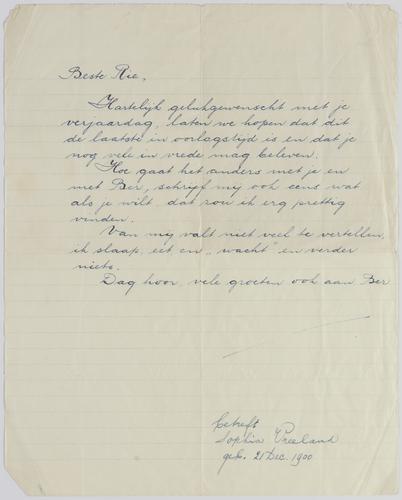 Beste Rie,
Hartelijk gelukgewenscht met je
verjaardag, laten we hopen dat dit
de laatste in oorlagstijd is en dat je
nog vele in vrede mag beleven.
Hoe gaat het anders met je en
met Ber, schrijf mij ook eens wat
als je wilt, dat zou ik erg prettig
vinden.
Van mij valt niet veel te vertellen,
ik slaap, eet, en „wacht" en verder
niets.
Dag hoor, vele groeten ook aan Ber
betreft
Sophia Vreeland
geb. 21 Dec. 1900